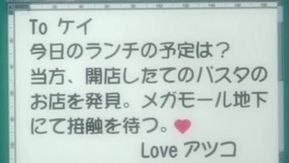 To ケイ
今日のランチの予定は？
当方、開店したてのパスタの
お店を発見。メガモール地下
にて接触を待つ。❤
Love アツコ